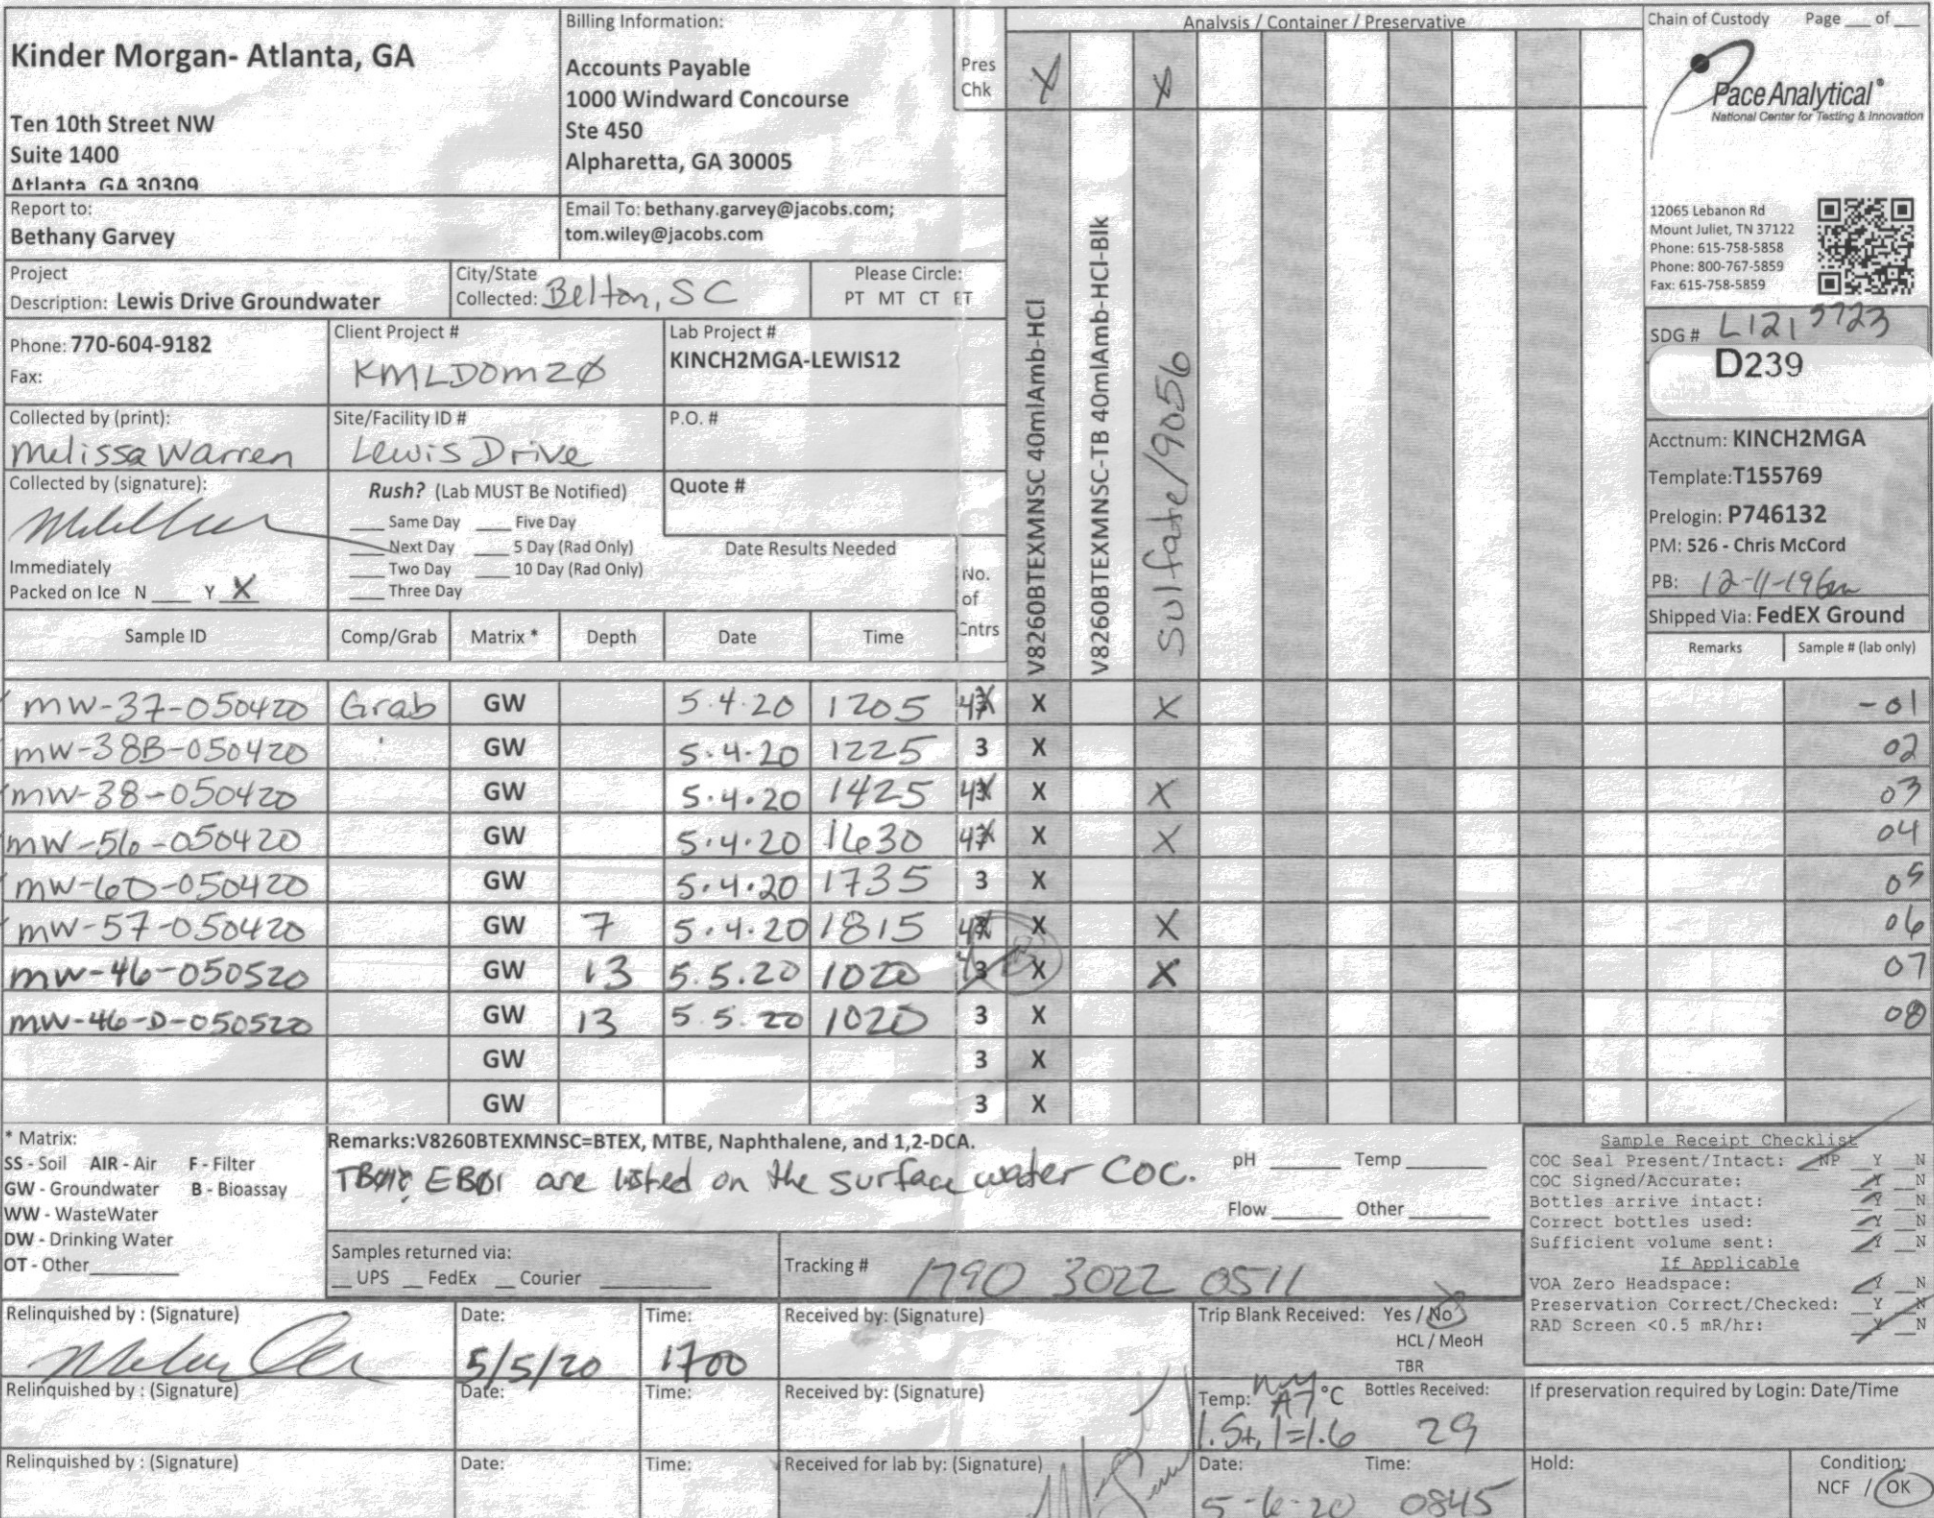 Kinder Morgan- Atlanta, GA
Ten 10th Street NW
Suite 1400
Atlanta, GA 30309
Billing Information:
Accounts Payable
1000 Windward Concourse
Ste 450
Alpharetta, GA 30005
Pres
Chk
X X
Analysis / Container / Preservative
V8260BTEXMNSC 40mlAmb-HCl
V8260BTEXMNSC-TB 40mlAmb-HCl-Blk
Sulfate/9056
Chain of Custody Page ___ of ___
Pace Analytical®
National Center for Testing & Innovation
12065 Lebanon Rd
Mount Juliet, TN 37122
Phone: 615-758-5858
Phone: 800-767-5859
Fax: 615-758-5859
Report to:
Bethany Garvey
Email To: bethany.garvey@jacobs.com;
tom.wiley@jacobs.com
Project
Description: Lewis Drive Groundwater
City/State
Collected: Belton, SC
Please Circle:
PT MT CT ET
Phone: 770-604-9182
Fax:
Client Project #
KMLDOM20
Lab Project #
KINCH2MGA-LEWIS12
SDG #
D239
Collected by (print):
Melissa Warren
Site/Facility ID #
Lewis Drive
P.O. #
Acctnum: KINCH2MGA
Template:T155769
Prelogin: P746132
PM: 526 - Chris McCord
PB: 12-11-19
Shipped Via: FedEX Ground
Remarks Sample # (lab only)
Collected by (signature):
Immediately
Packed on Ice N ___ Y X
Rush? (Lab MUST Be Notified)
___ Same Day ___ Five Day
___ Next Day ___ 5 Day (Rad Only)
___ Two Day ___ 10 Day (Rad Only)
___ Three Day
Quote #
Date Results Needed
No.
of
Cntrs
Sample ID Comp/Grab Matrix * Depth Date Time
MW-37-050420 Grab GW 5.4.20 1205 4 X X -01
MW-38B-050420 GW 5.4.20 1225 3 X 02
MW-38-050420 GW 5.4.20 1425 4 X X 03
MW-56-050420 GW 5.4.20 1630 4 X X 04
MW-60-050420 GW 5.4.20 1735 3 X 05
MW-57-050420 GW 7 5.4.20 1815 4 X X 06
MW-46-050520 GW 13 5.5.20 1020 3 X X 07
MW-46-D-050520 GW 13 5.5.20 1020 3 X 08
GW 3 X
GW 3 X
* Matrix:
SS - Soil AIR - Air F - Filter
GW - Groundwater B - Bioassay
WW - WasteWater
DW - Drinking Water
OT - Other
Remarks:V8260BTEXMNSC=BTEX, MTBE, Naphthalene, and 1,2-DCA.
EB01 are listed on the surface water COC.
pH ___ Temp ___
Flow ___ Other ___
Samples returned via:
__ UPS __ FedEx __ Courier
Tracking # 1790 3022 0511
Sample Receipt Checklist
COC Seal Present/Intact: NP Y N
COC Signed/Accurate: Y N
Bottles arrive intact: Y N
Correct bottles used: Y N
Sufficient volume sent: Y N
If Applicable
VOA Zero Headspace: Y N
Preservation Correct/Checked: Y N
RAD Screen <0.5 mR/hr: Y N
Relinquished by : (Signature)
Date:
5/5/20
Time:
1700
Received by: (Signature)
Trip Blank Received: Yes / No
HCL / MeoH
TBR
Relinquished by : (Signature)
Date:
Time:
Received by: (Signature)
Temp: A7 °C
1.5+.1=1.6
Bottles Received:
29
If preservation required by Login: Date/Time
Relinquished by : (Signature)
Date:
Time:
Received for lab by: (Signature)
Date:
5-6-20
Time:
0845
Hold:
Condition:
NCF / OK